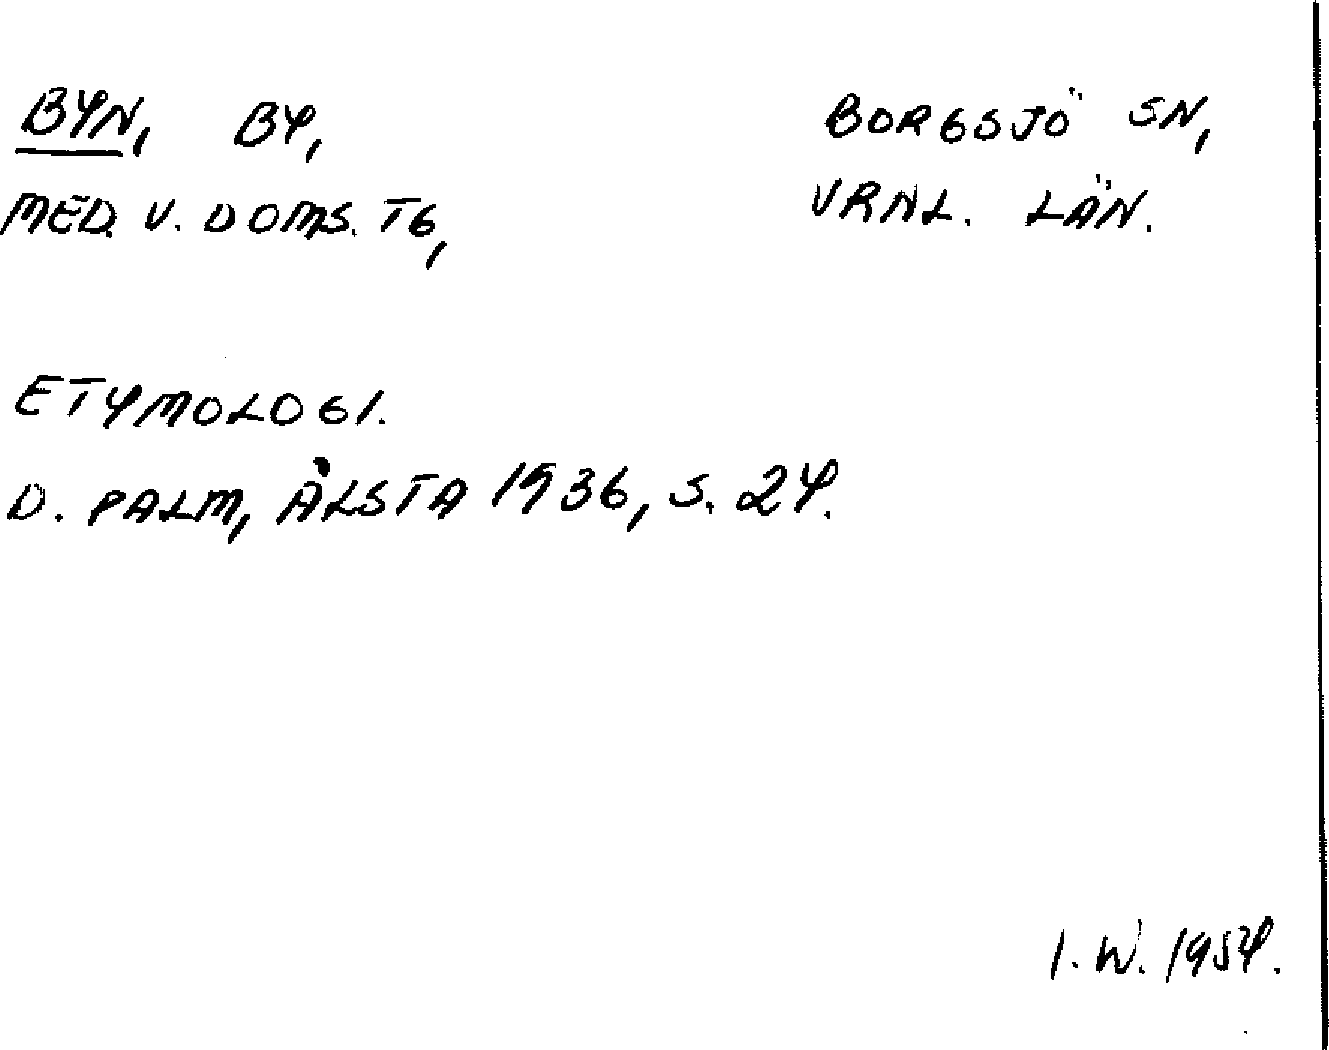 BYN, BY, BORGSJÖ SN,
MED. V. DOMS. TG, VRNL. LÄN.
ETYMOLOGI.
D. PALM, ÅLSTA 1936, S. 24.
I. W. 1954.